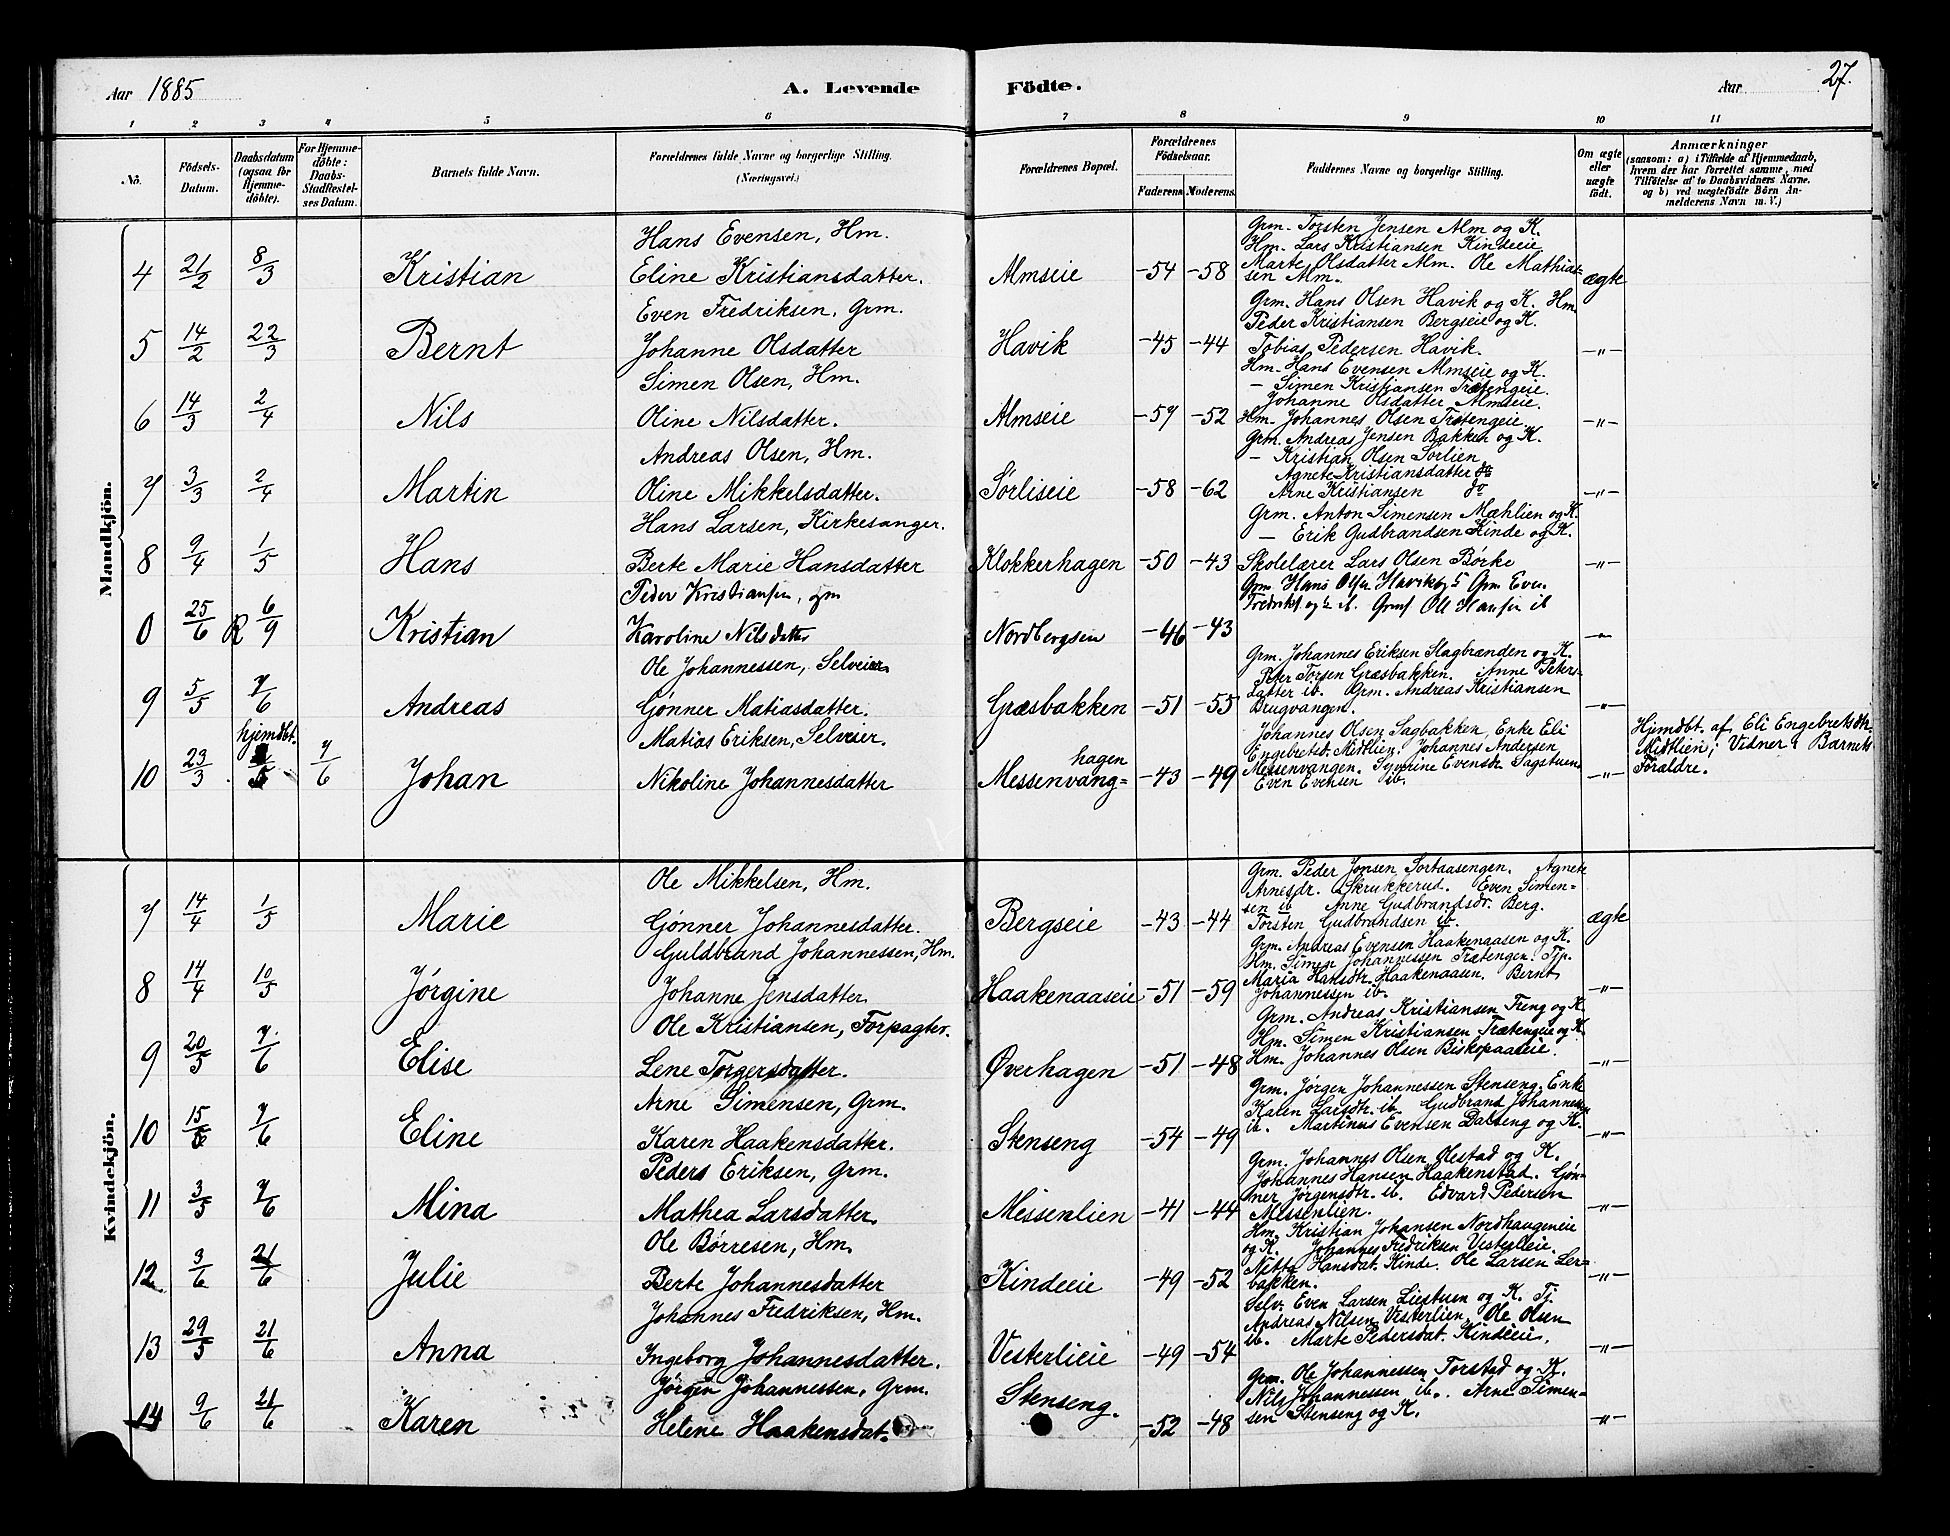 Aar 1885
A. Levende Födte.
Aar
27.
1 2 3 4 5 6 7 8 9 10 11
No.
Födsels-Datum.
Daabsdatum (ogsaa for Hjemme-döbte).
For Hjemme-döbte: Daabs-Stadfæstel-ses Datum.
Barnets fulde Navn.
Forældrenes fulde Navne og borgerlige Stilling. (Næringsvei.)
Forældrenes Bopæl.
Forældrenes Födselsaar.
Faderens. Moderens.
Faddernes Navne og borgerlige Stilling.
Om ægte eller uægte födt.
Anmærkninger
(saasom: a) i Tilfælde af Hjemmedaab, hvem der har forrettet samme, med Tilföielse af to Daabsvidners Navne. og b) ved uægtefödte Börn An-melderens Navn m. V.)
Mandkjön.
4 21/2 8/3 Kristian
Hans Evensen, Hm.
Eline Kristiansdatter.
Almseie -54 -58
Grm. Torsten Jensen Alm og K.
Hm. Lars Kristiansen Kindeeie
Marte Olsdatter Alm. Ole Mathias-
sen Alm.
ægte
5 14/2 22/3 Bernt
Even Fredriksen, Grm.
Johanne Olsdatter
Havik -45 -44
Grm. Hans Olsen Havik og K. Hm.
Peder Kristiansen Bergseie og K.
Tobias Pedersen Havik.
-"-
6 14/3 2/4 Nils
Simen Olsen, Hm.
Oline Nilsdatter.
Almseie -57 -52
Hm. Hans Evensen Almseie og K.
- Simen Kristiansen Trætengeie.
Johanne Olsdatter Almseie.
Hm. Johannes Olsen Trætengeie
-"-
7 3/3 2/4 Martin
Andreas Olsen, Hm.
Oline Mikkelsdatter.
Sørliseie -58 -62
Grm. Andreas Jensen Bakken og K.
- Kristian Olsen Sørlien
Agnete Kristiansdatter do
Arne Kristiansen do
-"-
8 9/4 1/5 Hans
Hans Larsen, Kirkesanger.
Berte Marie Hansdatter
Klokkerhagen -50 -43
Grm. Anton Simensen Mæhlien og K.
- Erik Gudbrandsen Kinde og K.
Skolelærer Lars Olsen Børke
-"-
0 25/6 R 6/9 Kristian
Peder Kristiansen, gm
Karoline Nilsdatter
Nordbergsen -46 -43
Grm Hans Olsen Havik og Grm Even
Fredriks. og ib. Ole Hansen ib
-"-
9 5/5 7/6 Andreas
Ole Johannessen, Selveier
Gønner Matiasdatter.
Græsbakken -51 -55
Grm. Johannes Eriksen Slagbrænden og K.
Peter Torsen Græsbakken. Anne Peters-
datter ib. Grm. Andreas Kristiansen
Brugvangen.
-"-
10 23/3 hjemdbt. 5 7/6 Johan
Matias Eriksen, Selveier.
Nikoline Johannesdatter
Messenvang=hagen -43 -49
Johannes Olsen Sagbakken, Enke Eli
Engebretsd. Midtlien. Johannes Andersen
Messenvangen. Syverine Evensdr. Sagstuen
Even Evensen ib.
-"-
Hjemdbt. af Eli Engebretsdtr.
Midtlien; Vidner: Barnets
Forældre.
Kvindekjön.
7 14/4 1/5 Marie
Ole Mikkelsen, Hm.
Gønner Johannesdatter.
Bergseie -43 -44
Grm. Peder Jonsen Sortaasengen. Agnete
Arnesdr. Skrukkerud. Even Simen=
sen ib Anne Gudbrandsdr. Berg.
Torsten Gudbrandsen ib.
ægte
8 14/4 10/5 Jørgine
Guldbrand Johannessen, Hm.
Johanne Jensdatter
Haakenaaseie -51 -59
Grm. Andreas Evensen Haakenaasen og K.
Hm. Simen Johannessen Trætengen. Tjp.
Maria Hansdtr. Haakenaasen. Bernt
Johannessen ib.
-"-
9 20/5 7/6 Elise
Ole Kristiansen, Forpagter.
Lene Torgersdatter.
Øverhagen -51 -48
Grm. Andreas Kristiansen Treng og K.
Hm. Simen Kristiansen Trætengeie og K.
Hm. Johannes Olsen Biskopaaseie.
-"-
10 15/5 7/6 Eline
Arne Simensen, Grm.
Karen Haakensdatter.
Stenseng -54 -49
Grm. Jørgen Johannessen Stenseng. Enke
Karen Larsdtr. ib. Gudbrand Johannessen
ib. Martinus Evensen Dalseng og K.
-"-
11 3/5 7/6 Mina
Peders Eriksen, Grm.
Mathea Larsdatter.
Messenlien -41 -44
Grm. Johannes Olsen Olestad og K.
Johannes Hansen Haakenstad. Gøn-
ner Jørgensdtr. ib. Edvard Pedersen
Messenlien.
-"-
12 3/6 21/6 Julie
Ole Børresen, Hm.
Berte Johannesdatter
Kindeeie -49 -52
Hm. Kristian Johansen Nordhaugeneie
og K. Johannes Fredriksen Vesterlieie.
Nitte Hansdat. Kinde. Ole Larsen Ler-
bakken.
-"-
13 29/5 21/6 Anna
Johannes Fredriksen, Hm.
Ingeborg Johannesdatter.
Vesterlieie -49 -54
Selv. Even Larsen Liestuen og K. Tj.
Andreas Nilsen Vesterlien. Ole Olsen
ib. Marte Pedersdat. Kindeeie.
-"-
14 9/6 21/6 Karen
Jørgen Johannessen, Grm.
Helene Haakensdat.
Stenseng. -52 -48
Grm. Ole Johannessen Torstad og K.
Nils Johannessen ib. Arne Simen-
sen Stenseng og K.
-"-